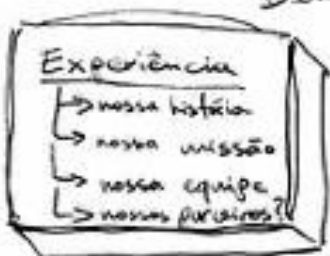 Experiência
↳ nossa história
↳ nossa missão
↳ nossa equipe
↳ nossos parceiros?